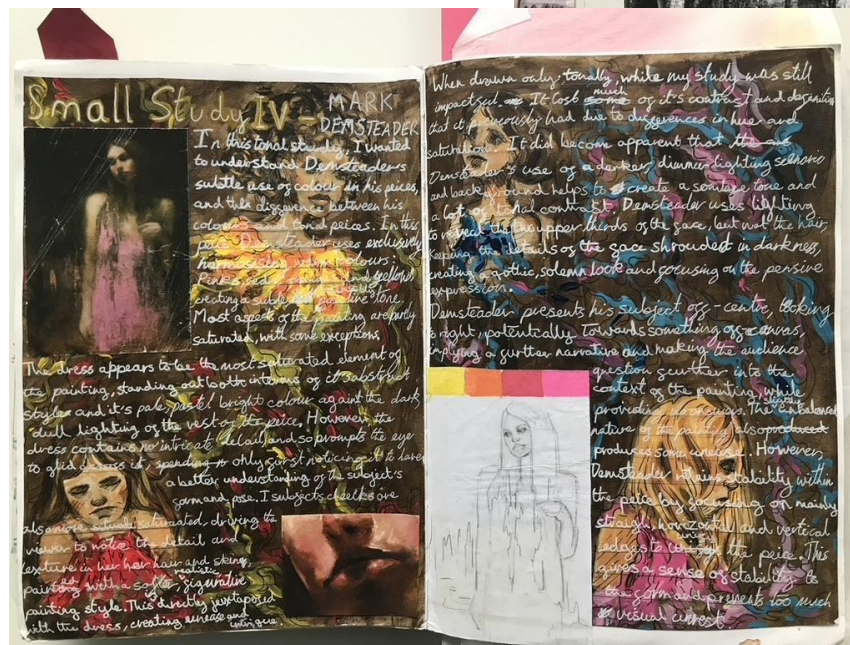 Small Study IV - MARK
DEMSTEADER
In this tonal study, I wanted
to understand Demsteader's
subtle use of colour in his peices,
and the diggerence between his
colour and tonal peices. In this
peice Demsteader uses exclusively
colours:
and yellow,
creating a subtle tone.
Most aspects of the painting are
saturated, with some exceptions,
The dress appears to be the most saturated element of
the painting, standing out both in terms of it's abstract
style and it's pale, pastel bright colour against the dark,
dull lighting of the rest of the peice. However, the
dress contains no intricate detail, and so prompts the eye
to glid across it, only girst noticing it to have
a better understanding of the subject's
gorm and pose. subjects cheeks are
also more saturated, driving the
viewer to notice the detail and
texture in her hair and skin,
painting with a realistic, gigurative
painting style. This directly juxtaposed
with the dress, creating unease and
intrigue
When drawn only tonally, while my study was still
impactgul, It lost much og it's contrast and
that it previously had due to diggerences in hue and
saturation. It did become apparent that
Demsteader's use og a darker, dimmer lighting scenario
and background helps to create a sombre tone and
a lot og tonal contrast. Demsteader uses lighting
to reveal the upper thirds og the gace, but not the hair,
Keeping the details og the gace shrouded in darkness,
creating a gothic, solemn look and gocusing on the pensive
expression.
Demsteader presents his subject ogg-centre, looking
to right, potentially towards something ogg-canvas,
implying a gurther narrative and making the audience
question gurther into the
context og the painting, while
providing no answers. The unbalanced
nature og the painting also
produces some unease. However,
Demsteader stability within
the peice by gocusing on mainly
straight, horizontal and vertical
the peice. This
gives a sense og stability to
the gorm and prevents too much
visual unrest